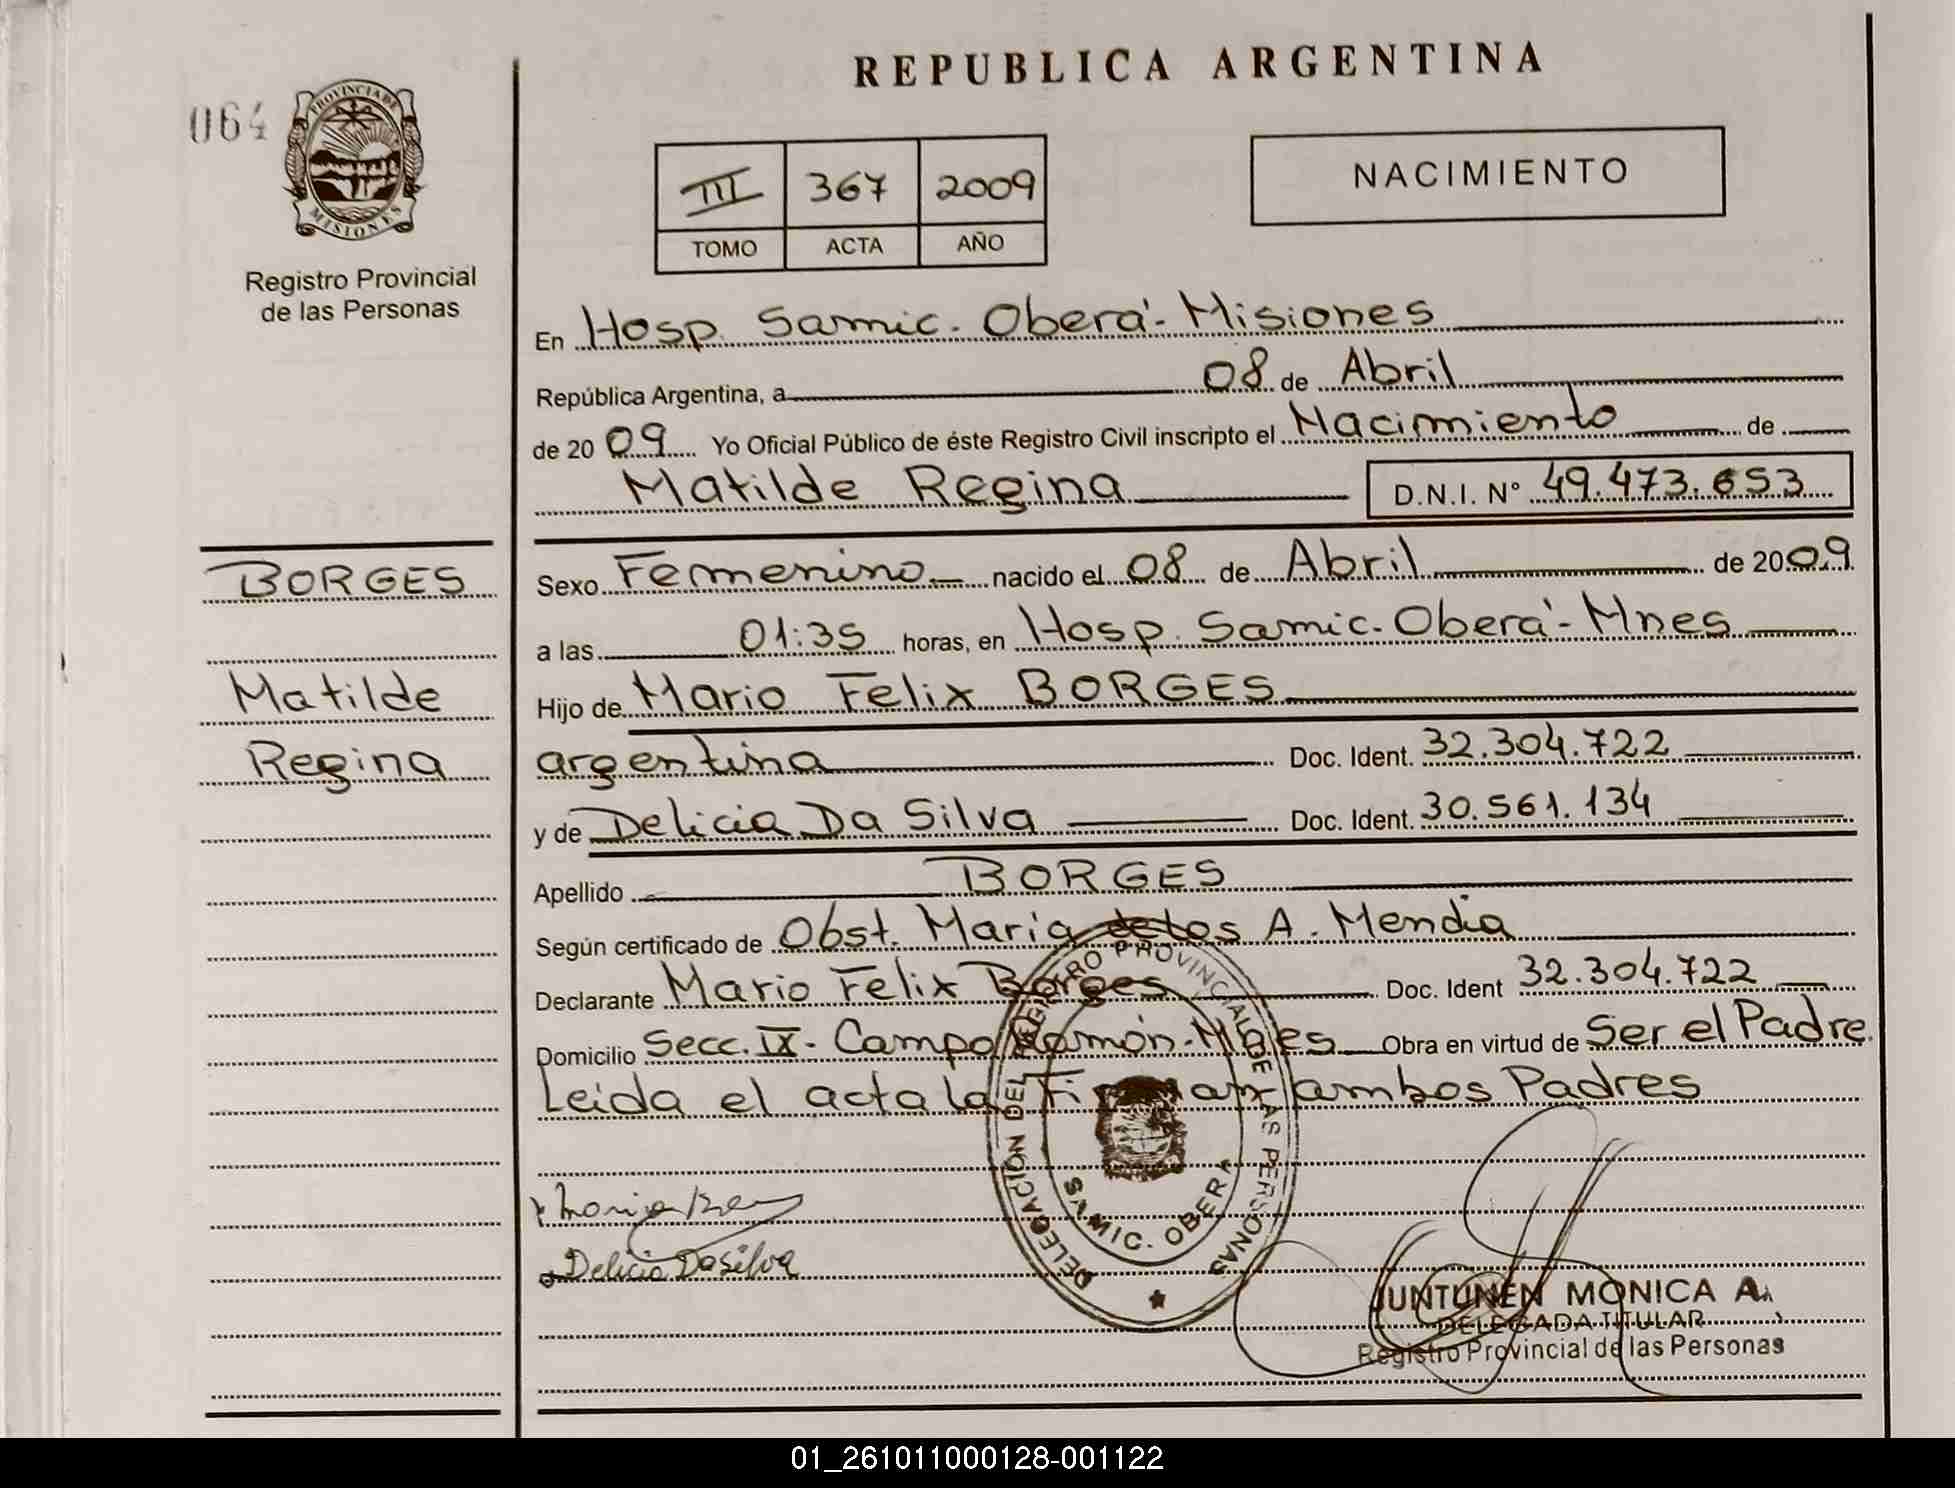 REPUBLICA ARGENTINA
064
PROVINCIA DE
MISIONES
Registro Provincial
de las Personas
III 367 2009
TOMO ACTA AÑO
NACIMIENTO
En Hosp. Samic. Oberá - Misiones
República Argentina, a 08 de Abril
de 20 09 Yo Oficial Público de éste Registro Civil inscripto el Nacimiento de
Matilde Regina D.N.I. N° 49.473.653
BORGES
Matilde
Regina
Sexo Femenino nacido el 08 de Abril de 2009
a las 01:35 horas, en Hosp. Samic. Oberá - Mnes
Hijo de Mario Felix BORGES
argentina Doc. Ident. 32.304.722
y de Delicia Da Silva Doc. Ident. 30.561.134
Apellido BORGES
Según certificado de Obst. Maria de los A. Mendia
Declarante Mario Felix Borges Doc. Ident 32.304.722
Domicilio Secc. IX - Campo Ramón - Mnes Obra en virtud de Ser el Padre.
Leida el acta la Firman ambos Padres
DELEGACIÓN DEL REGISTRO PROVINCIAL DE LAS PERSONAS
SAMIC. OBERA
Delicia Da silva
JUNTUNEN MONICA A.
DELEGADA TITULAR
Registro Provincial de las Personas
01_261011000128-001122